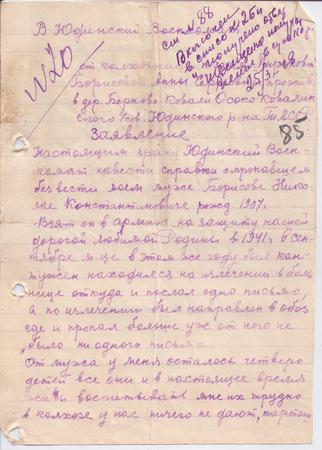 В Юдинский Военкомат
см № 88
от колхоз
Борисовой Анны
в дер. Берново Ковали Осоко Ковалин
ского с/с. Юдинского р-на ТАССР
Заявление
85
№20
Настоящим прошу Юдинский Воен-
комат навести справки о пропавшем
без вести моем муже Борисове Нико-
лае Константиновиче рожд 1907.
Взят он в армию на защиту нашей
дорогой любимой Родины в 1941 г. в сен-
тябре м-це в этом же году был кон-
тужен находился на излечении в боль
нице откуда и послал одно письмо,
а по излечении был направлен в обоз
где и пропал больше уж от него не
было ни одного письма.
От мужа у меня осталось четверо
детей все они и в настоящее время
живы воспитывать мне их трудно
в колхозе у нас ничего не дают,